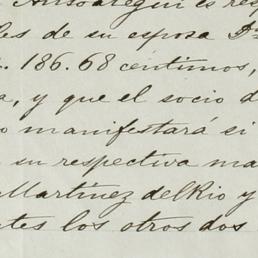 Ansoategui es resp
les de su esposa Dª
. 186.68 centimos,
a, y que el socio d
o manifestará si
su respectiva ma
Martinez del Rio y
tes los otros dos